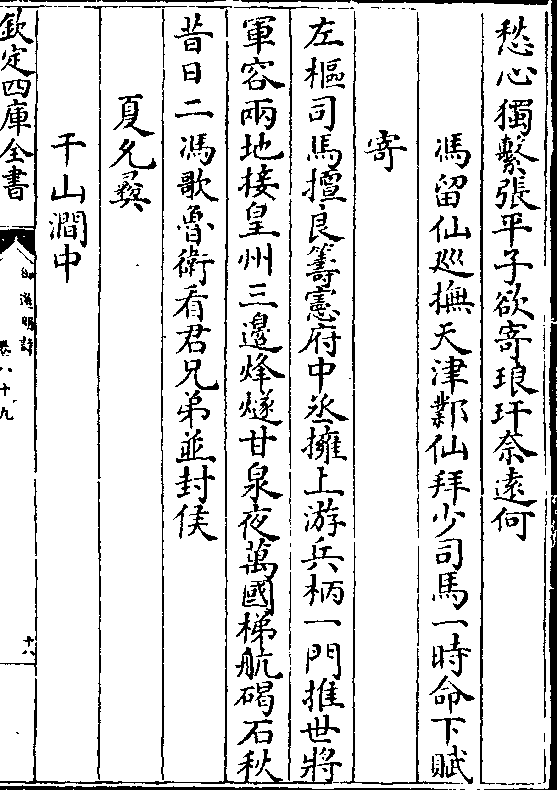 愁心獨繫張平子欲寄琅玕奈遠何
馮留仙巡撫天津鄴仙拜少司馬一時命下賦
寄
左樞司馬擅良籌憲府中丞擁上游兵柄一門推世將
軍容兩地接皇州三邊烽燧甘泉夜萬國梯航碣石秋
昔日二馮歌魯衛看君兄弟並封侯
夏允彝
干山澗中
欽定四庫全書
御選明詩
卷八十九
十八